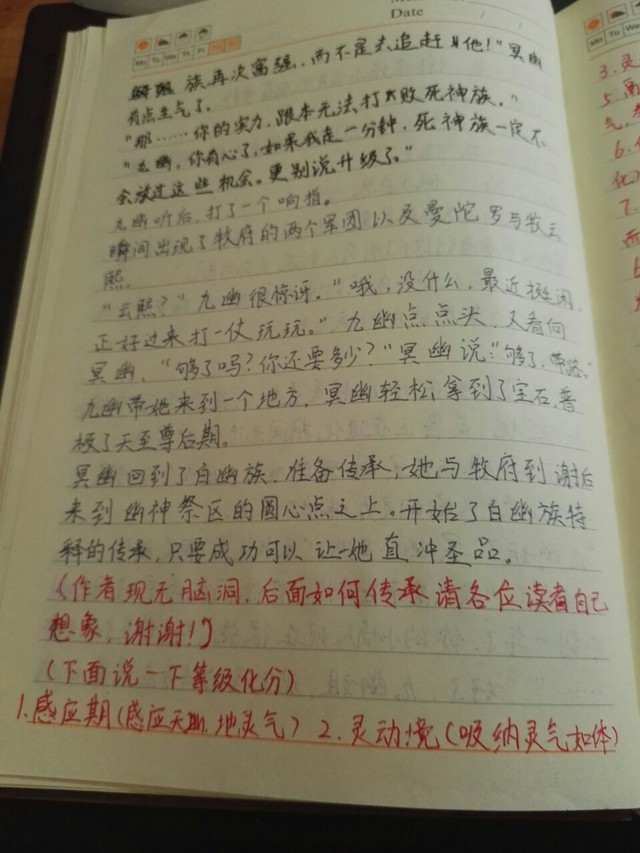 Date / /
Mo Tu We Th Fr Sa Su
族再次富强，而不是去追赶其他！"冥幽
有点生气了。
"那……你的实力，跟本无法打大败死神族。"
"九幽，你有心了，如果我走一分钟，死神族一定不
会放过这些机会。更别说升级了。"
九幽听后，打了一个响指。
瞬间出现了牧府的两个军团以及曼陀罗与牧云
熙。
"云熙？"九幽很惊讶。"哦，没什么，最近挺闲，
正好过来打一仗玩玩。"九幽点点头，又看向
冥幽，"够了吗？你还要多少？"冥幽说："够了，带路。"
九幽带她来到一个地方，冥幽轻松拿到了宝石，晋
极了天至尊后期。
冥幽回到了白幽族，准备传承，她与牧府到谢后
来到幽神祭区的圆心点之上。开始了白幽族特
释的传承，只要成功可以让她直冲圣品。
（作者现无脑洞，后面如何传承请各位读者自己
想象，谢谢！）
（下面说一下等级化分）
1.感应期（感应天地灵气） 2.灵动境（吸纳灵气如体）
Mo Tu We
3.灵
5.
气
6.
化
7.
而